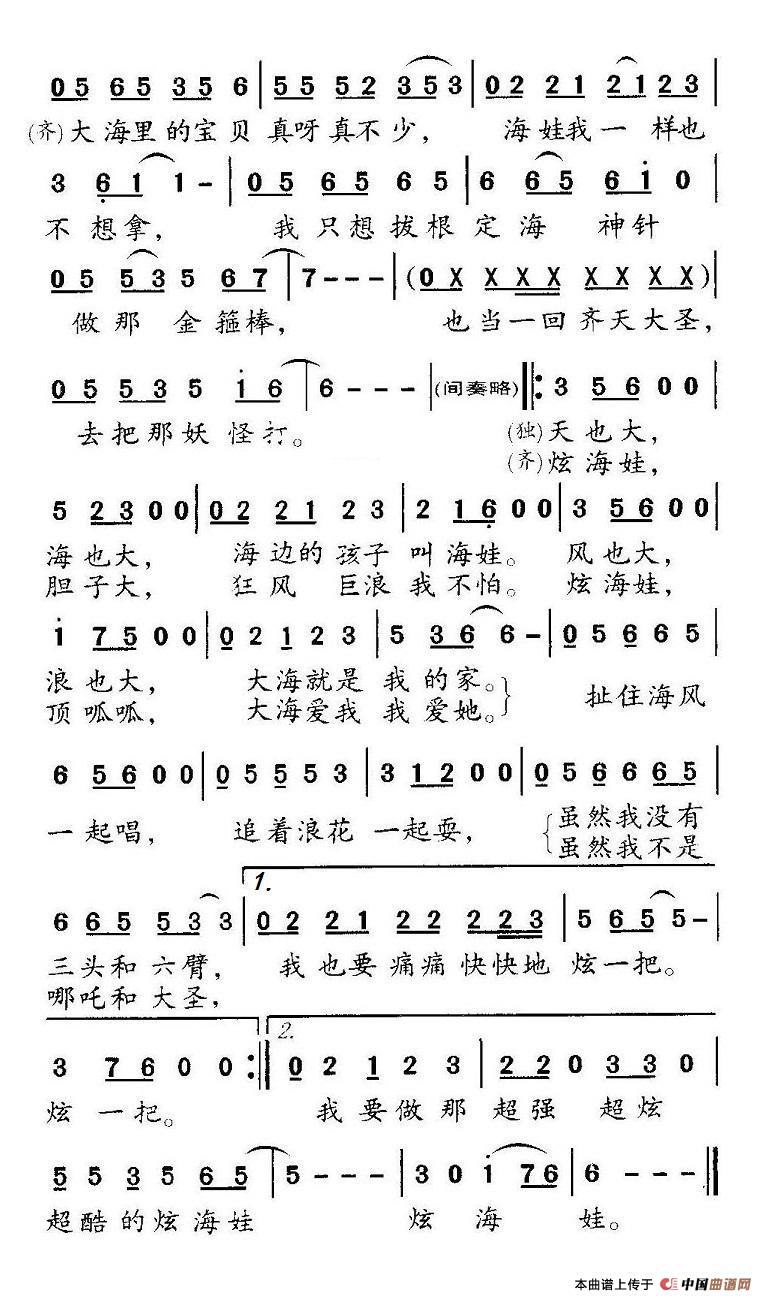 0 5 6 5 3 5 6 | 5 5 5 2 3 5 3 | 0 2 2 1 2 1 2 3 |
(齐)大海里的宝贝 真呀真不少， 海娃我一 样也
3 6 1 1 - | 0 5 6 5 6 5 | 6 6 5 6 1 0
不 想拿， 我只想拔根 定海 神针
0 5 5 3 5 6 7 | 7 - - - | (0 X X X X X X X X) |
做那 金箍棒， 也当一回齐天大圣，
0 5 5 3 5 1 6 | 6 - - - | (间奏略) ‖: 3 5 6 0 0 |
去把那妖 怪打。 (独)天也大，
(齐)炫海娃，
5 2 3 0 0 | 0 2 2 1 2 3 | 2 1 6 0 0 | 3 5 6 0 0 |
海也大， 海边的孩子 叫海娃。 风也大，
胆子大， 狂风 巨浪 我不怕。 炫海娃，
1 7 5 0 0 | 0 2 1 2 3 | 5 3 6 6 - | 0 5 6 6 5 |
浪也大， 大海就是 我的家。 扯住海风
顶呱呱， 大海爱我 我爱她。
6 5 6 0 0 | 0 5 5 5 3 | 3 1 2 0 0 | 0 5 6 6 6 5 |
一起唱， 追着浪花 一起耍， 虽然我没有
虽然我不是
1.
6 6 5 5 3 3 | 0 2 2 1 2 2 2 2 3 | 5 6 5 5 - |
三头和 六臂， 我也要痛痛 快快地 炫一把。
哪吒和 大圣，
2.
3 7 6 0 0 :‖ 0 2 1 2 3 | 2 2 0 3 3 0 |
炫 一把。 我要做那 超强 超炫
5 5 3 5 6 5 | 5 - - - | 3 0 1 7 6 | 6 - - - ‖
超酷的炫海娃 炫 海 娃。
本曲谱上传于 中国曲谱网